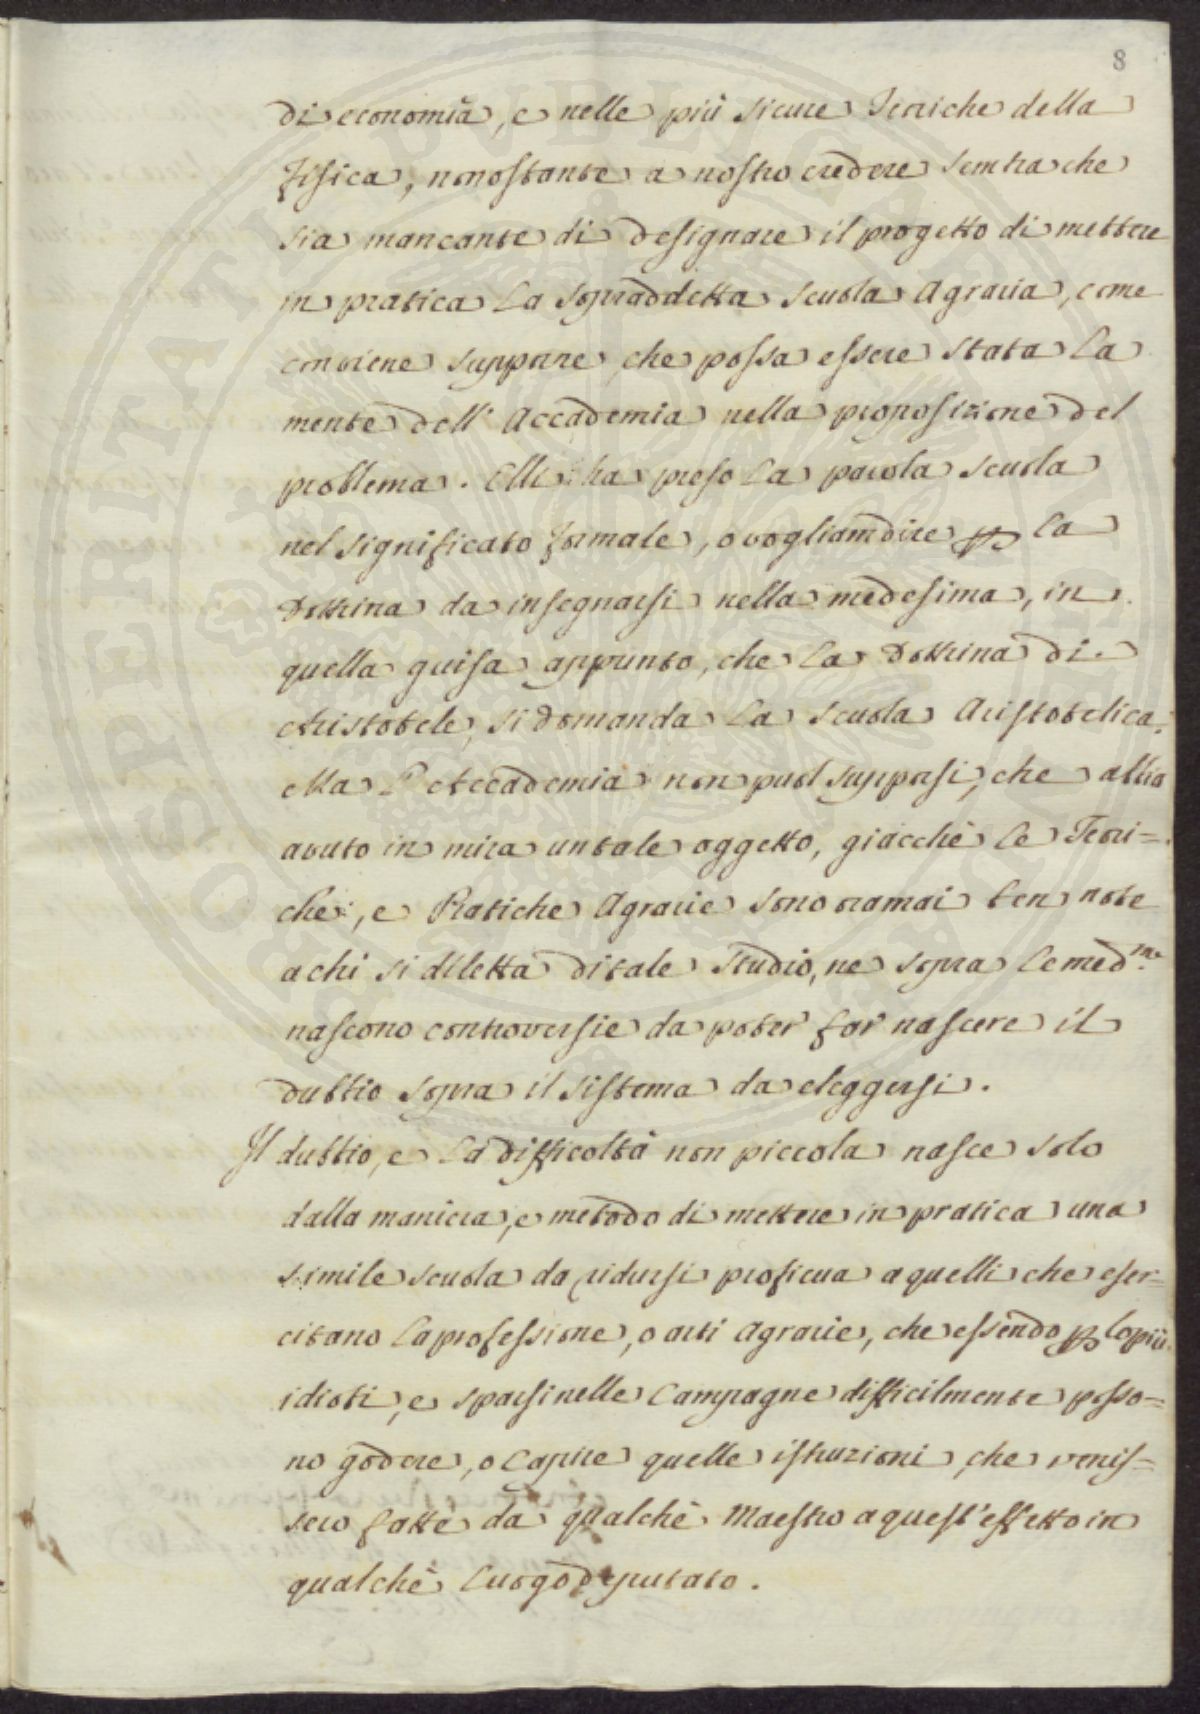 8
di economia, e nelle più sicure Teoriche della
fisica, nonostante a nostro credere sembra che
sia mancante di designare il progetto di mettere
in pratica la sopraddetta scuola Agraria, come
conviene supporre, che possa essere stata la
mente dell' Accademia nella proposizione del
problema. Elli ha preso la parola scuola
nel significato formale, o vogliam dire p la
Dottrina da insegnarsi nella medesima, in
quella guisa appunto, che la Dottrina di
Aristotele, si domanda la scuola Aristotelica.
Ma l'Accademia non puol supporsi, che abbia
avuto in mira un tale oggetto, giacchè le Teori=
che, e Pratiche Agrarie sono oramai ben note
a chi si diletta di tale studio, ne sopra le med.me
nascono controversie da poter far nascere il
dubbio sopra il sistema da eleggersi.
Il dubbio, e la difficoltà non piccola nasce solo
dalla maniera, e metodo di mettere in pratica una
simile scuola da ridursi proficua a quelli che eser=
citano la professione, o arti Agrarie, che essendo p lo più
idioti, e sparsi nelle Campagne difficilmente posso=
no godere, o capire quelle istruzioni, che venis=
sero fatte da qualchè Maestro a quest'effetto in
qualchè luogo deputato.
PROSPERITATI PUBLICAE AUGENDAE